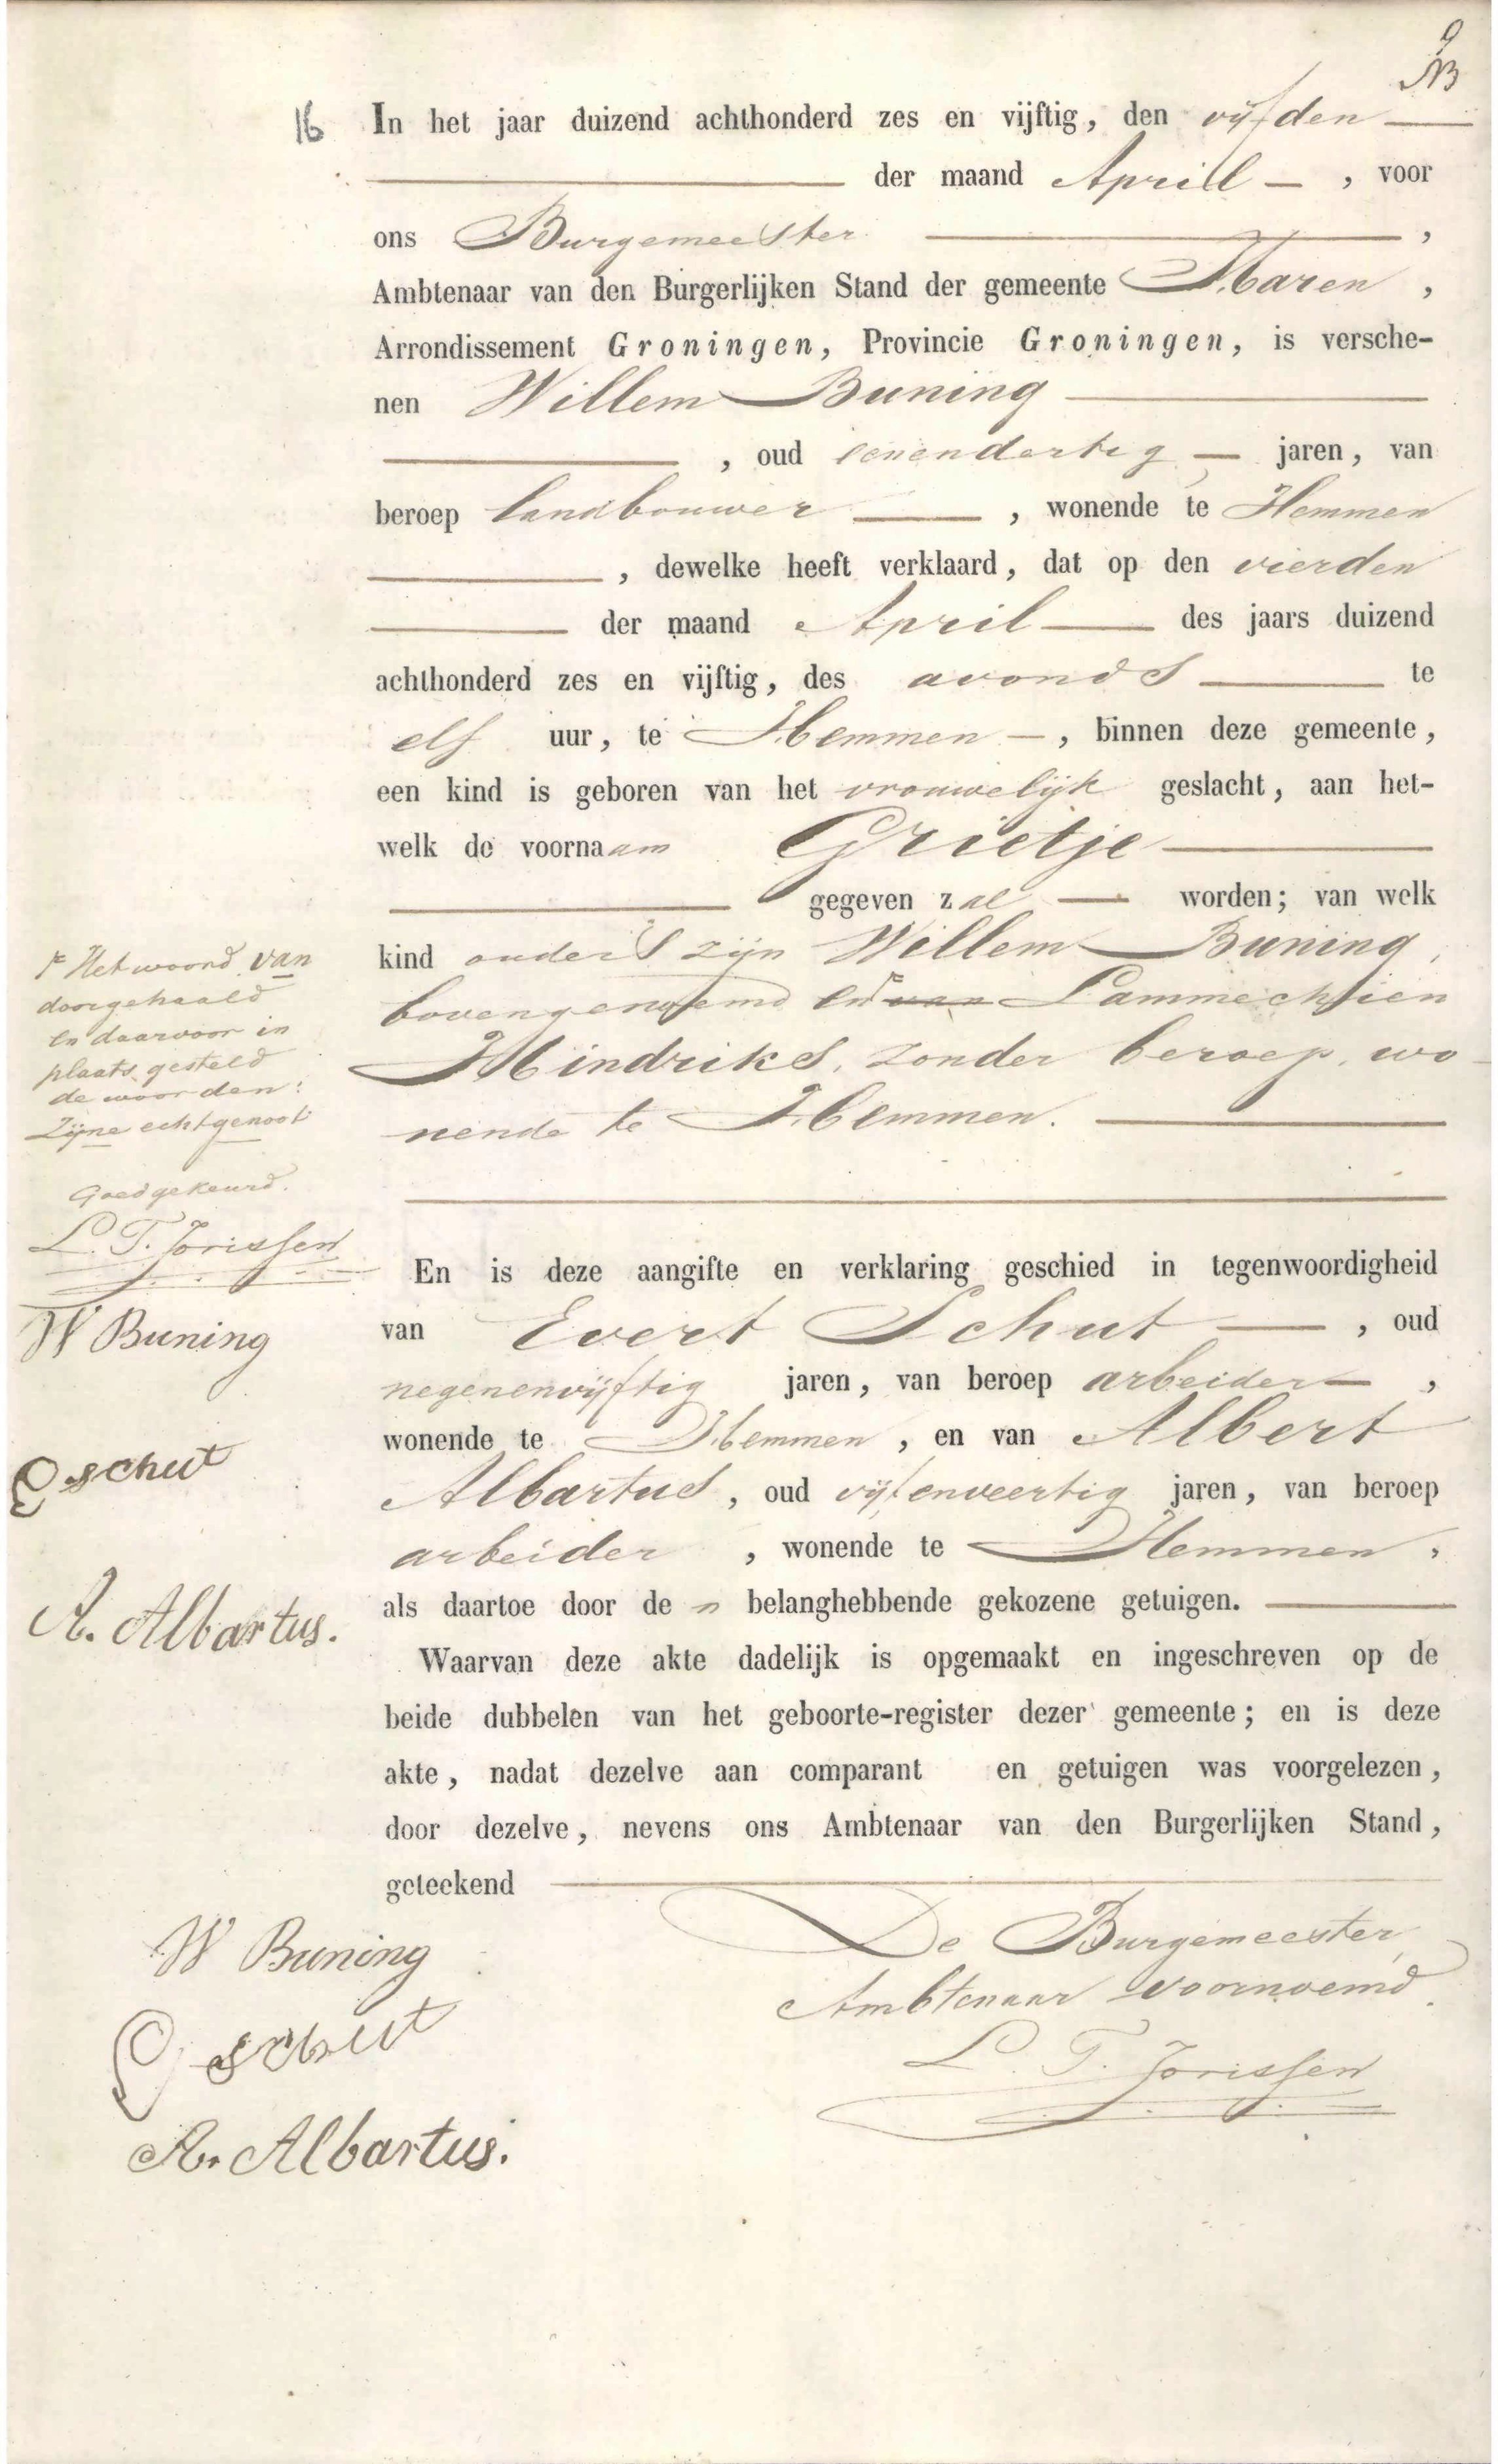 9
16 In het jaar duizend achthonderd zes en vijftig, den vijfden
der maand Aprill, voor
ons Burgemeester,
Ambtenaar van den Burgerlijken Stand der gemeente Haren,
Arrondissement Groningen, Provincie Groningen, is versche-
nen Willem Buning
, oud eenendertig jaren, van
beroep landbouwer, wonende te Hemmen
, dewelke heeft verklaard, dat op den vierden
der maand April des jaars duizend
achthonderd zes en vijftig, des avonds te
elf uur, te Hemmen, binnen deze gemeente,
een kind is geboren van het vrouwelijk geslacht, aan het-
welk de voornaam Grietje
gegeven zal worden; van welk
kind ouders zijn Willem Buning,
bovengenoemd en van Lammechien
Hindriks, zonder beroep, wo-
nende te Hemmen.
Het woord van
doorgehaald
en daarvoor in
plaats gesteld
de woorden:
Zijne echtgenoot
Goedgekeurd.
L. T. Jorissen
W Buning
E schut
A. Albartus.
En is deze aangifte en verklaring geschied in tegenwoordigheid
van Evert Schut, oud
negenenvijftig jaren, van beroep arbeider,
wonende te Hemmen, en van Albert
Albartus, oud vijfenveertig jaren, van beroep
arbeider, wonende te Hemmen,
als daartoe door de n belanghebbende gekozene getuigen.
Waarvan deze akte dadelijk is opgemaakt en ingeschreven op de
beide dubbelen van het geboorte-register dezer gemeente; en is deze
akte, nadat dezelve aan comparant en getuigen was voorgelezen,
door dezelve, nevens ons Ambtenaar van den Burgerlijken Stand,
geteekend
De Burgemeester
Ambtenaar voornoemd.
L. T. Jorissen
W Buning
E schut
A. Albartus.